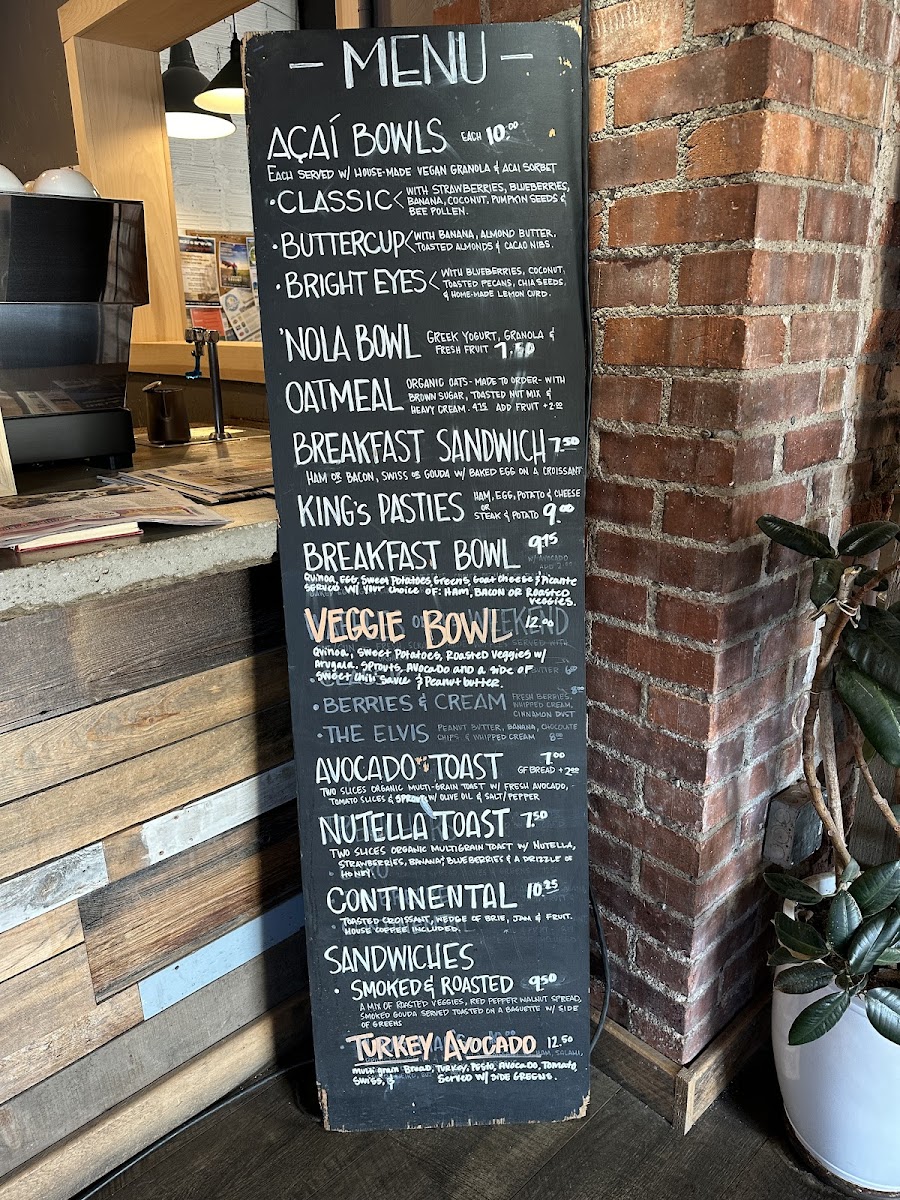 — MENU —
AÇAÍ BOWLS EACH 10.00
EACH SERVED W/ HOUSE-MADE VEGAN GRANOLA & ACAI SORBET
• CLASSIC < WITH STRAWBERRIES, BLUEBERRIES,
BANANA, COCONUT, PUMPKIN SEEDS &
BEE POLLEN.
• BUTTERCUP < WITH BANANA, ALMOND BUTTER,
TOASTED ALMONDS & CACAO NIBS.
• BRIGHT EYES < WITH BLUEBERRIES, COCONUT,
TOASTED PECANS, CHIA SEEDS,
& HOME-MADE LEMON CURD.
'NOLA BOWL GREEK YOGURT, GRANOLA &
FRESH FRUIT 7.50
OATMEAL ORGANIC OATS - MADE TO ORDER - WITH
BROWN SUGAR, TOASTED NUT MIX &
HEAVY CREAM. 4.75 ADD FRUIT +2.00
BREAKFAST SANDWICH 7.50
HAM OR BACON, SWISS OR GOUDA W/ BAKED EGG ON A CROISSANT
KING'S PASTIES HAM, EGG, POTATO & CHEESE
OR
STEAK & POTATO 9.00
BREAKFAST BOWL 9.75
W/ AVOCADO
ADD
Quinoa, Egg, Sweet Potatoes, Greens, Goat Cheese & Picante
SERVED W/ YOUR CHOICE OF: HAM, BACON OR ROASTED
VEGGIES.
VEGGIE BOWL 12.00
WEEKEND
Quinoa, Sweet Potatoes, Roasted Veggies w/
Arugala, Sprouts, Avocado and a side of
Sweet Chili Sauce & Peanut butter
• BERRIES & CREAM FRESH BERRIES,
WHIPPED CREAM,
CINNAMON DUST
• THE ELVIS PEANUT BUTTER, BANANA, CHOCOLATE
CHIPS, & WHIPPED CREAM 8.00
AVOCADO TOAST 7.00
GF BREAD +2.00
TWO SLICES ORGANIC MULTI-GRAIN TOAST W/ FRESH AVOCADO,
TOMATO SLICES & SPROUTS W/ OLIVE OIL & SALT/PEPPER
NUTELLA TOAST 7.50
TWO SLICES ORGANIC MULTIGRAIN TOAST W/ NUTELLA,
STRAWBERRIES, BANANA, BLUEBERRIES & A DRIZZLE OF
HONEY
CONTINENTAL 10.25
TOASTED CROISSANT, WEDGE OF BRIE, JAM & FRUIT.
HOUSE COFFEE INCLUDED.
SANDWICHES
• SMOKED & ROASTED 9.50
A MIX OF ROASTED VEGGIES, RED PEPPER WALNUT SPREAD,
SMOKED GOUDA SERVED TOASTED ON A BAGUETTE W/ SIDE
OF GREENS
• TURKEY AVOCADO 12.50
HAM, SALAMI,
Multi grain Bread, Turkey, Pesto, Avocado, Tomato,
Swiss, & SERVED W/ SIDE GREENS.